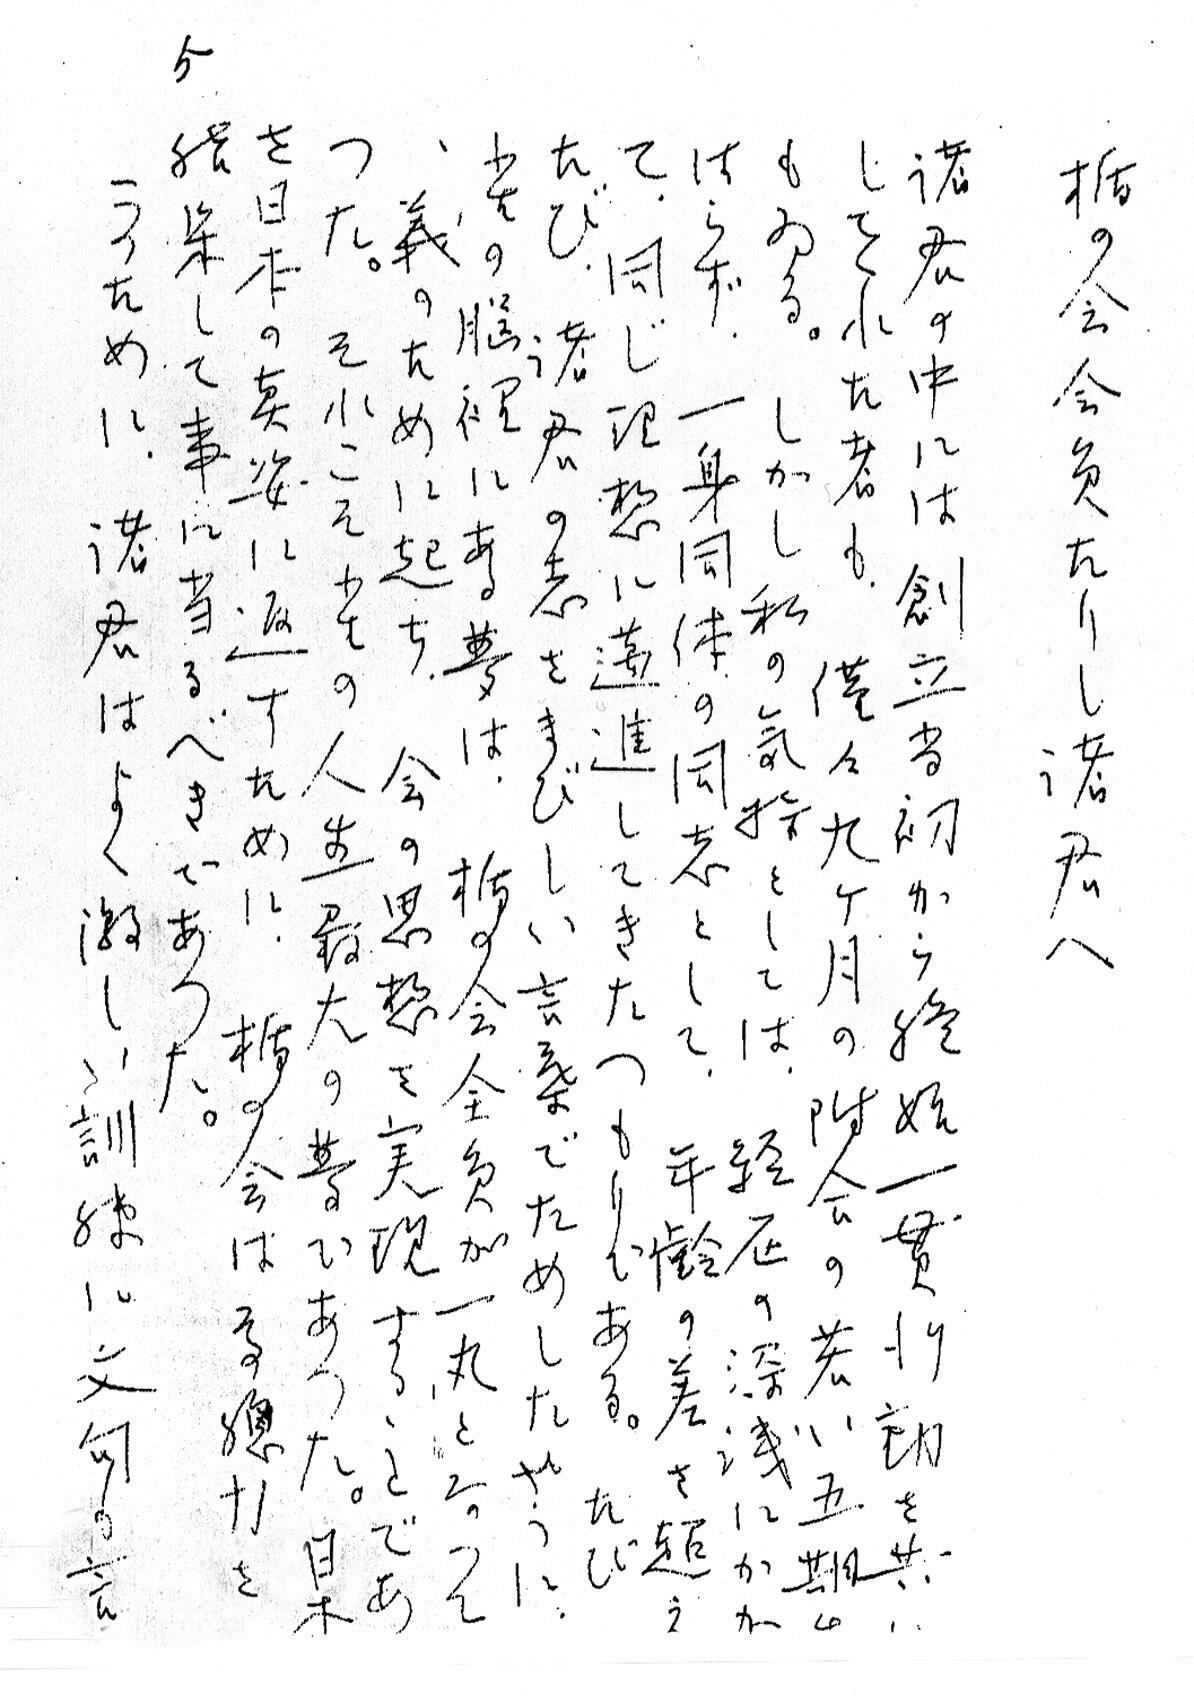 楯の会会員たりし諸君へ
諸君の中には創立当初から終始一貫行動を共に
してくれた者も、僅々九ヶ月の附会の若い五期生
もゐる。しかし私の気持としては、経歴の深浅にかか
はらず、一身同体の同志として、年齢の差を超え
て、同じ理想に邁進してきたつもりである。たび
たび、諸君の志をきびしい言葉でためしたやうに、
小生の脳裡にある夢は、楯の会全員が一丸となつて
、義のために起ち、会の思想を実現することであ
つた。それこそ小生の人生最大の夢であつた。日本
を日本の真姿に返すために、楯の会はその總力を
結集して事に当るべきであつた。
このために、諸君はよく激しい訓練に文句も言